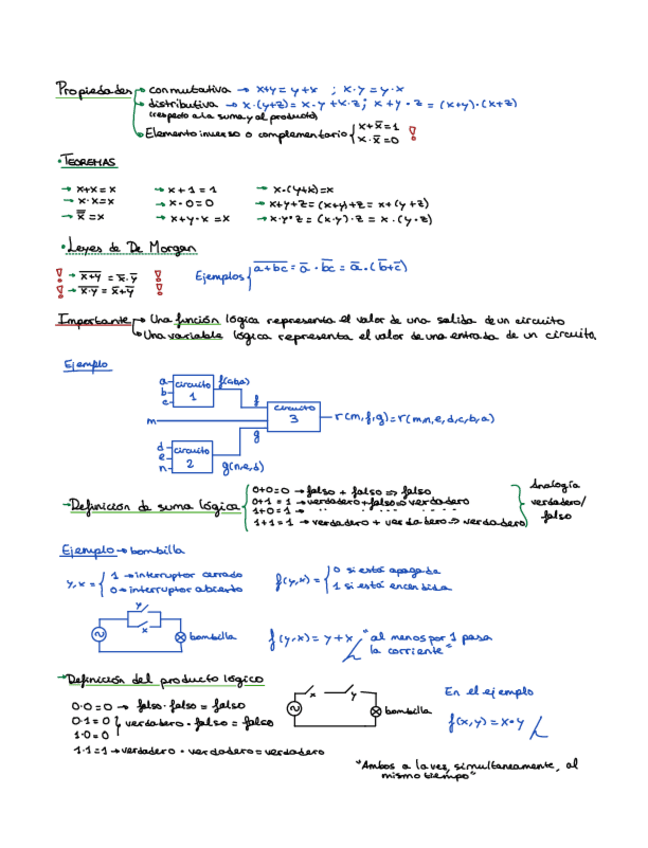 Propiedades → conmutativa → x+y = y+x ; x·y = y·x
→ distributiva → x·(y+z) = x·y + x·z ; x+y·z = (x+y)·(x+z)
(respecto a la suma y al producto)
→ Elemento inverso o complementario { x+x̅=1
x·x̅=0 !
· TEOREMAS
→ x+x=x → x+1=1 → x·(y+x)=x
→ x·x=x → x·0=0 → x+y+z = (x+y)+z = x+(y+z)
→ x̿=x → x+y·x=x → x·y·z = (x·y)·z = x·(y·z)
· Leyes de De Morgan
! → x̅+̅y̅ = x̅·y̅ !
! → x̅·̅y̅ = x̅+y̅ !
Ejemplos { a̅+̅b̅c̅ = a̅·b̅c̅ = a̅·(b̅+c̅)
Importante → Una función lógica representa el valor de una salida de un circuito
→ Una variable lógica representa el valor de una entrada de un circuito.
Ejemplo
a
b
c
circuito
1
f(a,b,c)
f
m
circuito
3
r(m,f,g) = r(m,n,e,d,c,b,a)
g
d
e
n
circuito
2
g(n,e,d)
→ Definición de suma lógica { 0+0=0 → falso + falso => falso
0+1=1 → verdadero + falso => verdadero
1+0=1 → '' '' - - - -
1+1=1 → verdadero + verdadero => verdadero
Analogía
verdadero/
falso
Ejemplo → bombilla
y,x = { 1 → interruptor cerrado
0 → interruptor abierto
f(y,x) = { 0 si está apagada
1 si está encendida
y
x
bombilla
f(y,x) = y+x "al menos por 1 pasa
la corriente"
→ Definición del producto lógico
0·0=0 → falso · falso = falso
0·1=0
1·0=0 } verdadero · falso = falso
1·1=1 → verdadero · verdadero = verdadero
x y
bombilla
En el ejemplo
f(x,y) = x·y
"Ambos a la vez, simultaneamente, al
mismo tiempo"